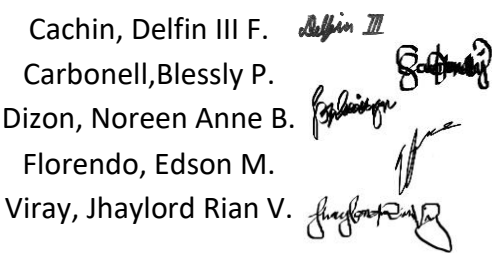 Cachin, Delfin III F. Delfin III
Carbonell,Blessly P.
Dizon, Noreen Anne B.
Florendo, Edson M.
Viray, Jhaylord Rian V.